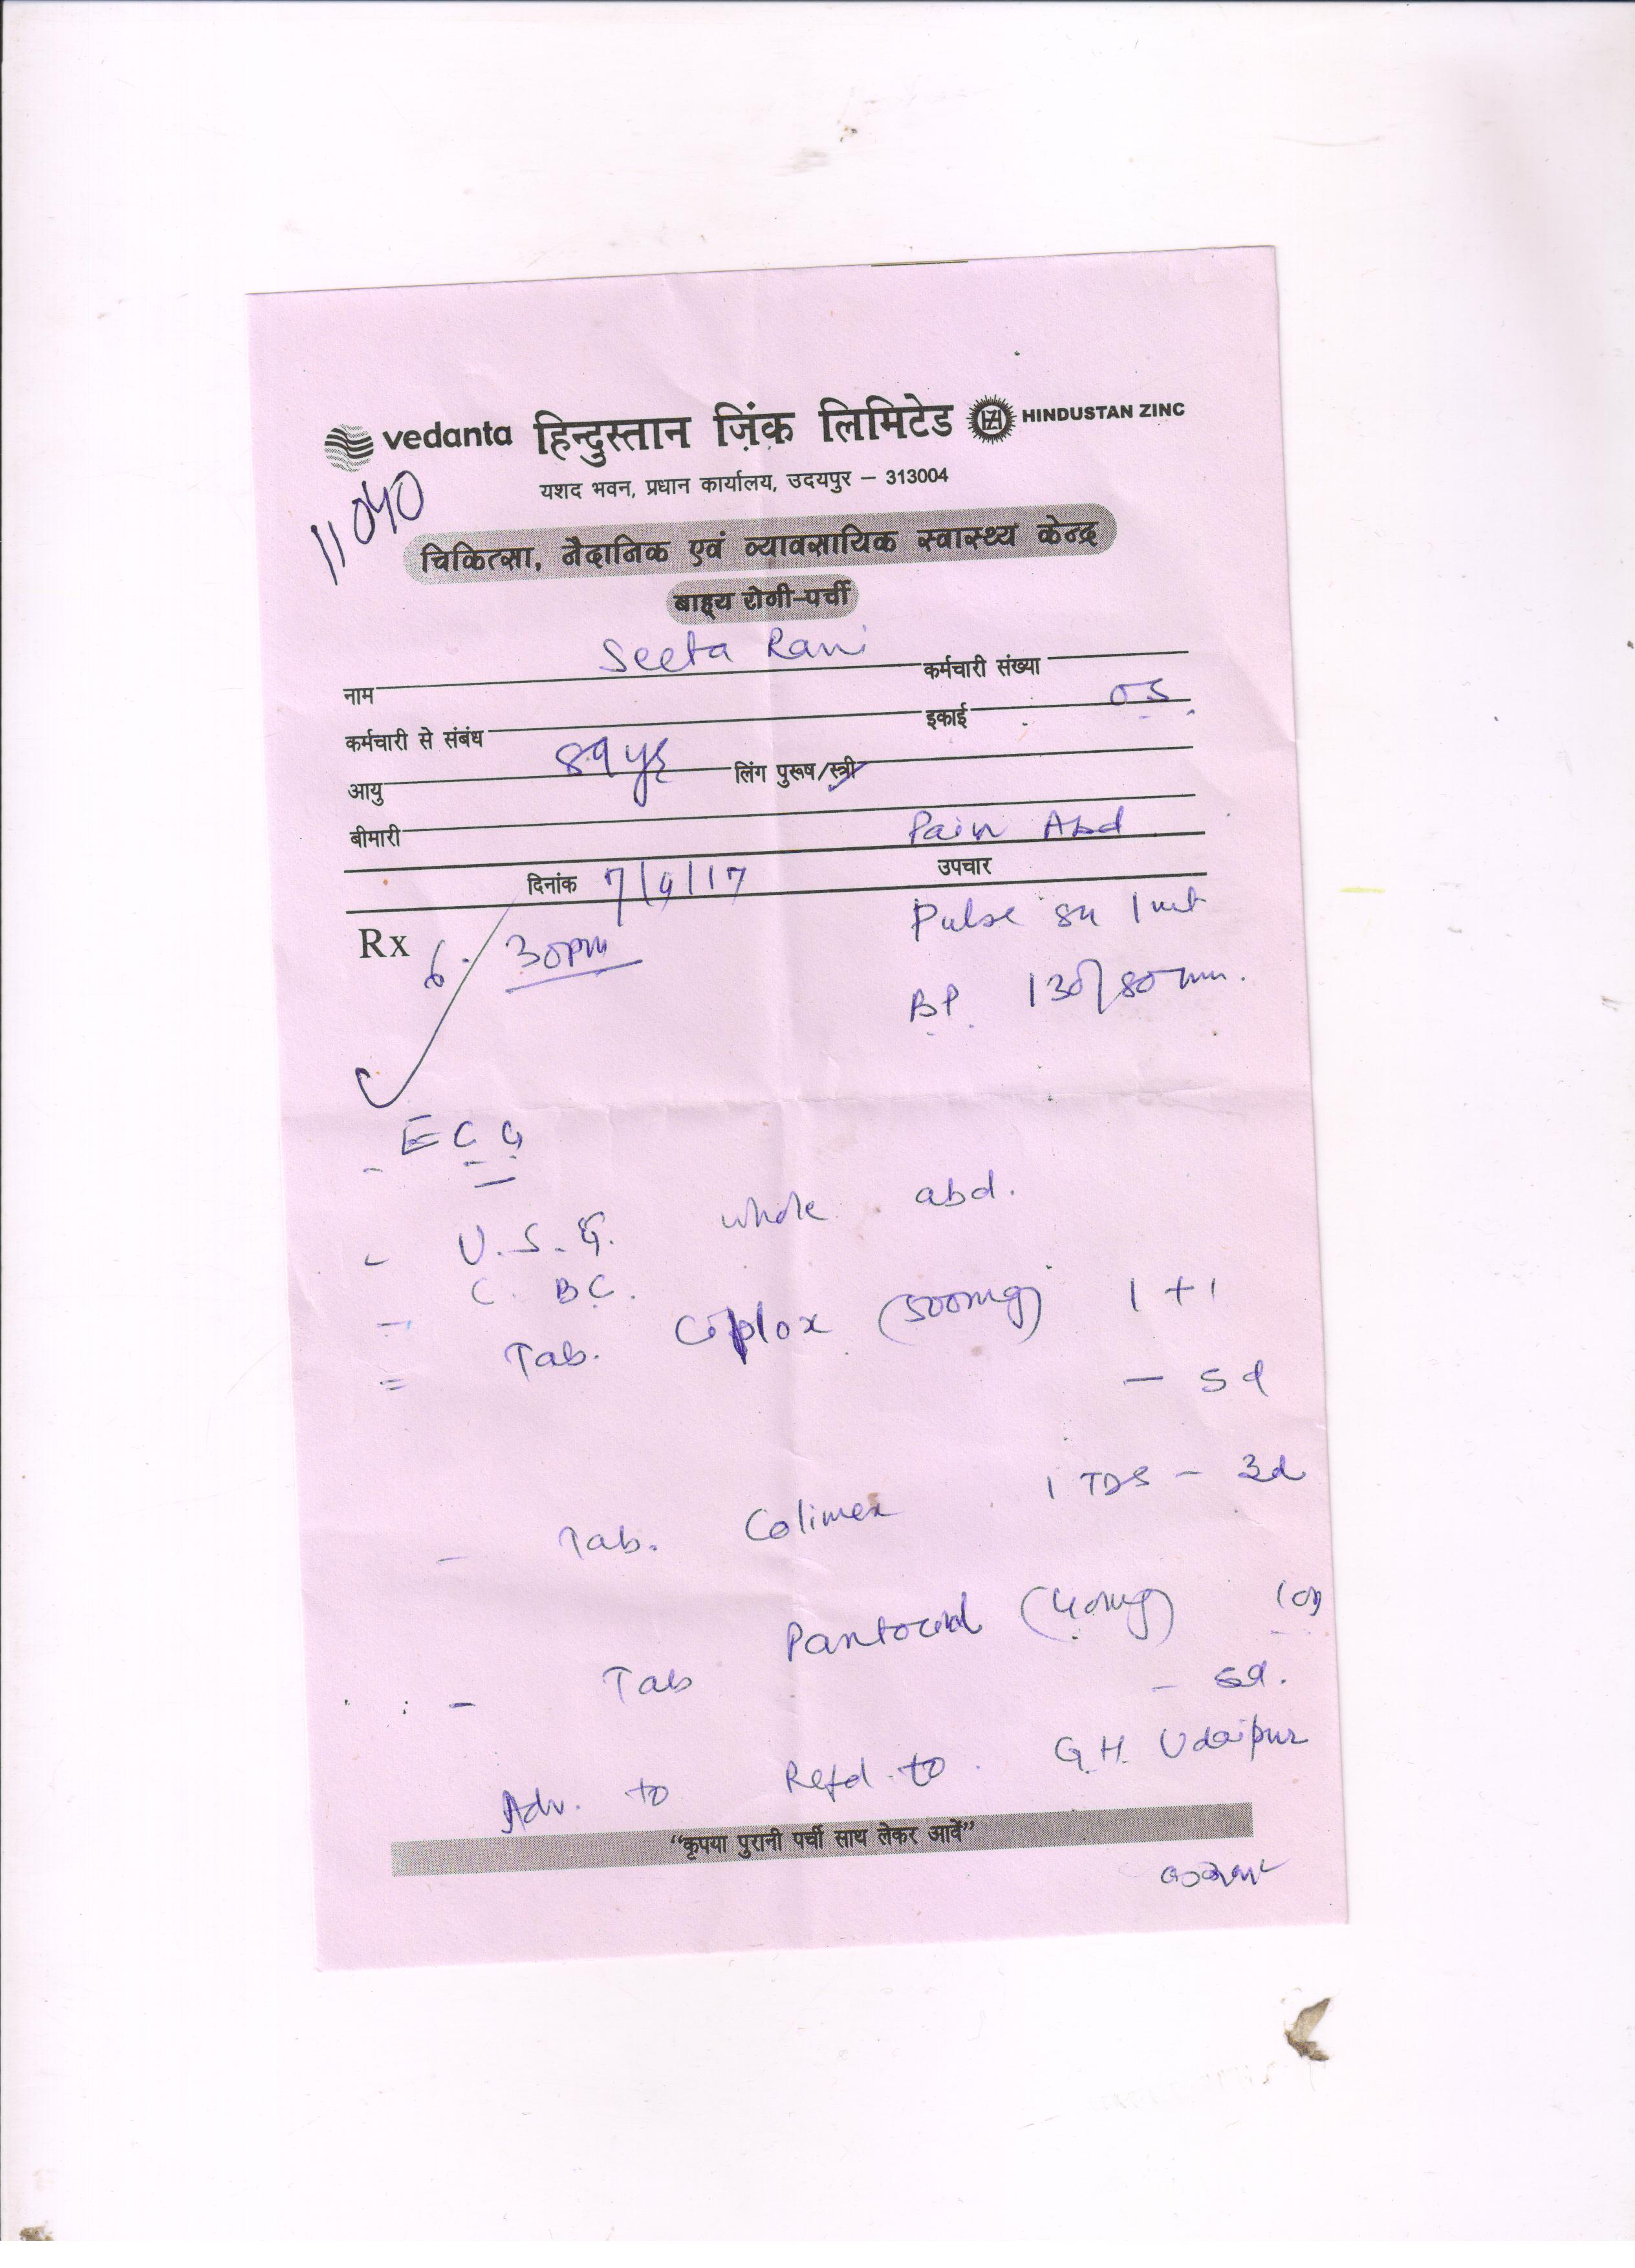 vedanta हिन्दुस्तान ज़िंक लिमिटेड HZL HINDUSTAN ZINC
यशद भवन, प्रधान कार्यालय, उदयपुर – 313004
11040
चिकित्सा, नैदानिक एवं व्यावसायिक स्वास्थ्य केन्द्र
बाह्य रोगी-पर्ची
नाम Seeta Rani कर्मचारी संख्या
कर्मचारी से संबंध इकाई OS
आयु 89 yrs लिंग पुरूष/स्त्री
बीमारी Pain Abd
दिनांक 7/4/17 उपचार
Rx 6. 30pm Pulse 84 / mt
BP. 130/80 mm.
- ECG
- U.S.G. whole abd.
- C. BC.
= Tab. Ciplox (500mg) 1 + 1
- 5d
- Tab. Colimex 1 TDS - 3d
- Tab Pantocid (40mg) 1 OD
- 5d.
Adv. to Refd. to G.H. Udaipur
“कृपया पुरानी पर्ची साथ लेकर आवें”